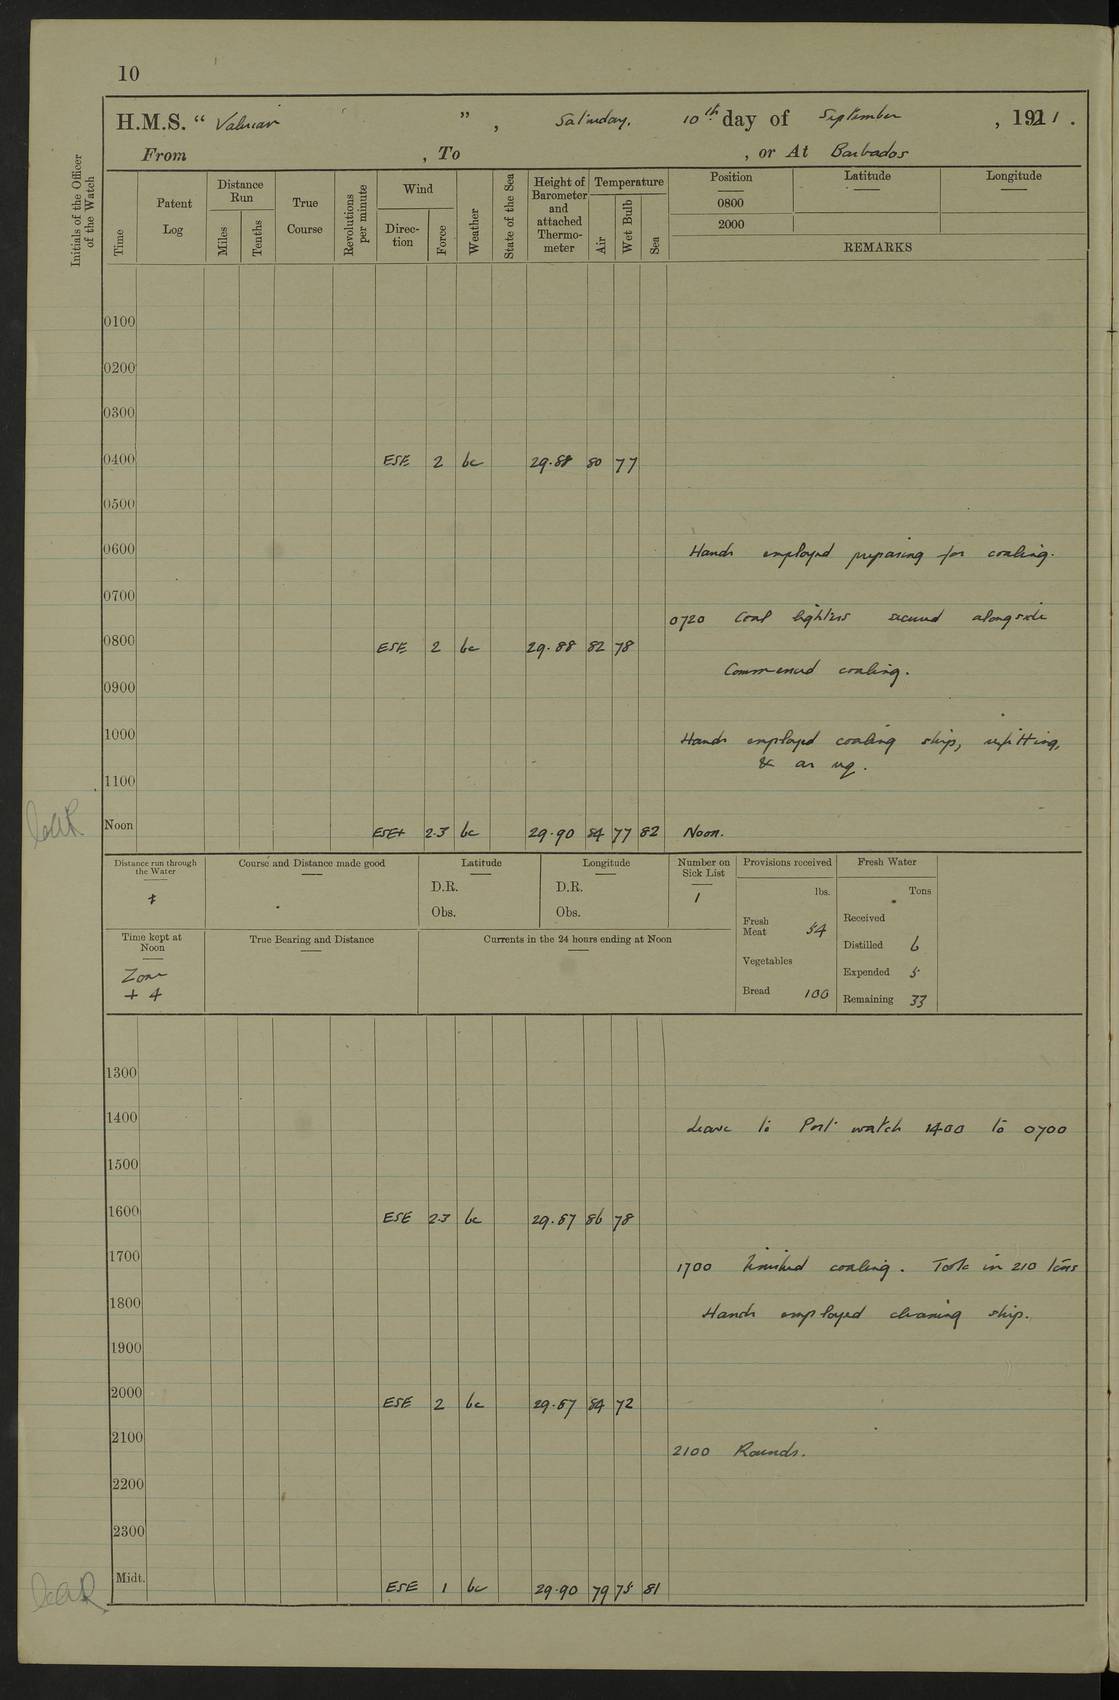 10
H.M.S. “ Valerian ” , Saturday, 10th day of September , 1921 .
From , To , or At Barbados
Initials of the Officer of the Watch
Time
Patent Log
Distance Run
Miles
Tenths
True Course
Revolutions per minute
Wind
Direction
Force
Weather
State of the Sea
Height of Barometer and attached Thermometer
Temperature
Air
Wet Bulb
Sea
Position Latitude Longitude
0800
2000
REMARKS
0100
0200
0300
0400 ESE 2 bc 29.88 80 77
0500
0600 Hands employed preparing for coaling.
0700
0720 Coal lighters secured alongside
0800 ESE 2 bc 29.88 82 78
Commenced coaling.
0900
1000 Hands employed coaling ship, refitting,
& as req.
1100
Noon ESE+ 2.3 bc 29.90 84 77 82 Noon.
Distance run through the Water
Course and Distance made good
Latitude
D.R.
Obs.
Longitude
D.R.
Obs.
Number on Sick List
1
Provisions received
lbs.
Fresh Meat 54
Vegetables
Bread 100
Fresh Water
Tons
Received
Distilled 6
Expended 5
Remaining 33
Time kept at Noon
Zone
+ 4
True Bearing and Distance
Currents in the 24 hours ending at Noon
1300
1400 Leave to Port watch 1400 to 0700
1500
1600 ESE 2.3 bc 29.87 86 78
1700 1700 Finished coaling. Took in 210 tons
1800 Hands employed cleaning ship.
1900
2000 ESE 2 bc 29.87 84 72
2100 2100 Rounds.
2200
2300
Midt. ESE 1 bc 29.90 79 75 81